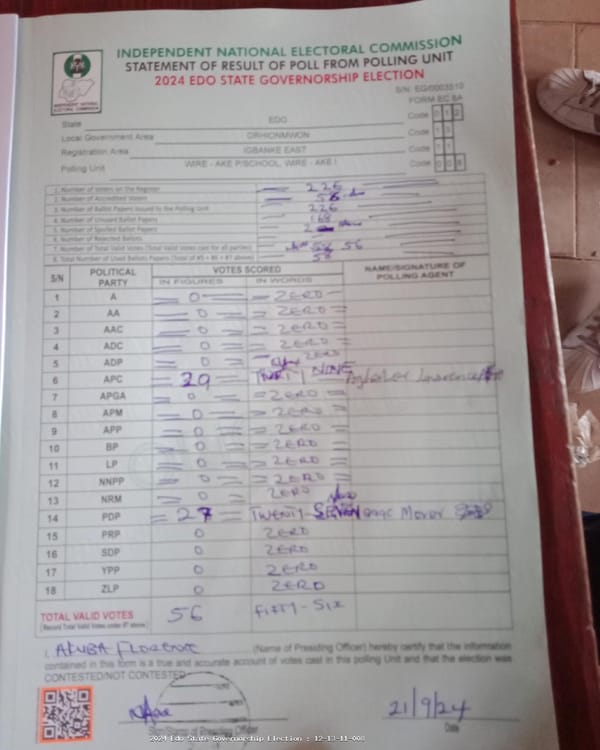 INDEPENDENT NATIONAL ELECTORAL COMMISSION
STATEMENT OF RESULT OF POLL FROM POLLING UNIT
2024 EDO STATE GOVERNORSHIP ELECTION
INDEPENDENT NATIONAL ELECTORAL COMMISSION
S/N: EG/0003510
FORM EC 8A
State EDO Code 0 1 2
Local Government Area ORHIONMWON Code 1 3
Registration Area IGBANKE EAST Code 1 1
Polling Unit WIRE - AKE P/SCHOOL, WIRE - AKE I Code 0 0 8
1. Number of Voters on the Register 226
2. Number of Accredited Voters 58
3. Number of Ballot Papers Issued to the Polling Unit 226
4. Number of Unused Ballot Papers 168
5. Number of Spoiled Ballot Papers 2
6. Number of Rejected Ballots
7. Number of Total Valid Votes (Total Valid Votes cast for all parties) 56
8. Total Number of Used Ballots Papers (Total of #5 + #6 + #7 above) 58
S/N POLITICAL PARTY VOTES SCORED NAME/SIGNATURE OF POLLING AGENT
IN FIGURES IN WORDS
1 A 0 ZERO
2 AA 0 ZERO
3 AAC 0 ZERO
4 ADC 0 ZERO
5 ADP 0 ZERO
6 APC 29 NINE Lawrence
7 APGA 0 ZERO
8 APM 0 ZERO
9 APP 0 ZERO
10 BP 0 ZERO
11 LP 0 ZERO
12 NNPP 0 ZERO
13 NRM 0 ZERO
14 PDP 27 TWENTY SEVEN
15 PRP 0 ZERO
16 SDP 0 ZERO
17 YPP 0 ZERO
18 ZLP 0 ZERO
TOTAL VALID VOTES 56 FIFTY-SIX
(Record Total Valid Votes under #7 above)
I, AKUBA FLORENCE (Name of Presiding Officer) hereby certify that the information
contained in this form is a true and accurate account of votes cast in this polling Unit and that the election was
CONTESTED/NOT CONTESTED
21/9/24
Presiding Officer Date
2024 Edo State Governorship Election : 12-13-11-008